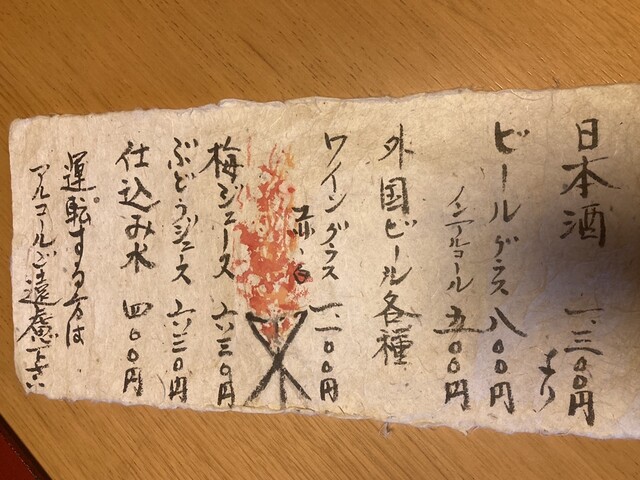 日本酒 一、三〇〇円より
ビールグラス 八〇〇円
ノンアルコール 五〇〇円
外国ビール各種
ワイングラス 一、一〇〇円
赤・白
梅ジュース 六三〇円
ぶどうジュース 六三〇円
仕込み水 四〇〇円
運転する方は
アルコールご遠慮下さい